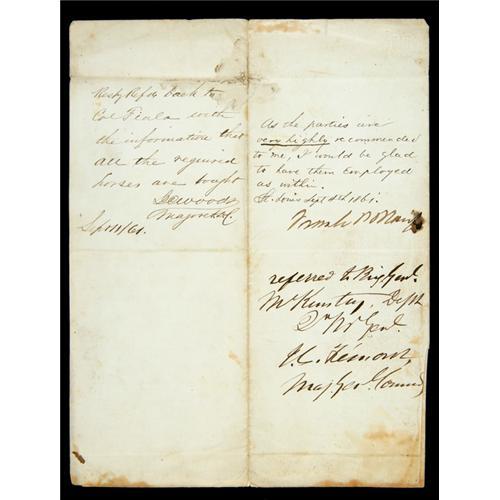 Resp Refd back to
Col Fiala with
the information that
all the required
horses are bought
I C Woods
Major &
Sep 11/61.
As the parties are
very highly recommended
to me, I would be glad
to have them employed
as within.
St. Louis Sept 4th 1861.
Frank P Blair
referred to Brig Genl.
McKinstry, Dept
Qr Mr Genl.
J. C. Frémont,
Maj. Gen. Comdg